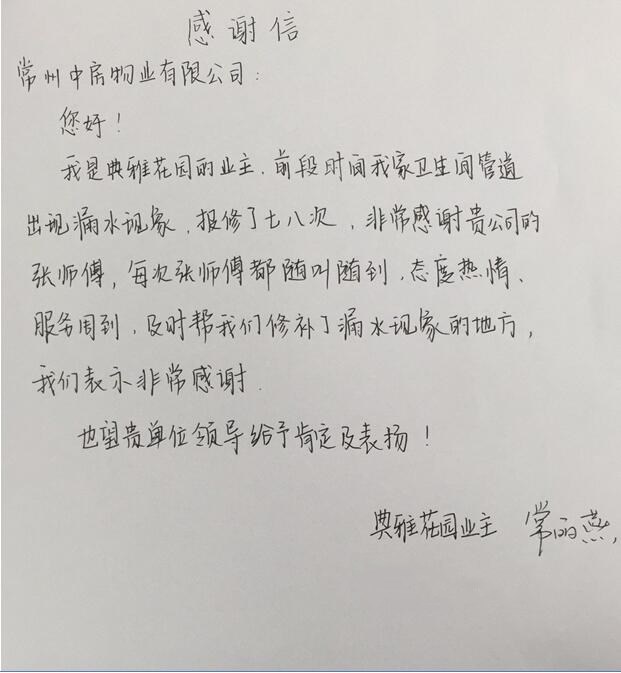 感谢信
常州中房物业有限公司：
您好！
我是典雅花园的业主．前段时间我家卫生间管道
出现漏水现象，报修了七八次，非常感谢贵公司的
张师傅，每次张师傅都随叫随到，态度热情、
服务周到，及时帮我们修补了漏水现象的地方，
我们表示非常感谢．
也望贵单位领导给予肯定及表扬！
典雅花园业主 常丽燕